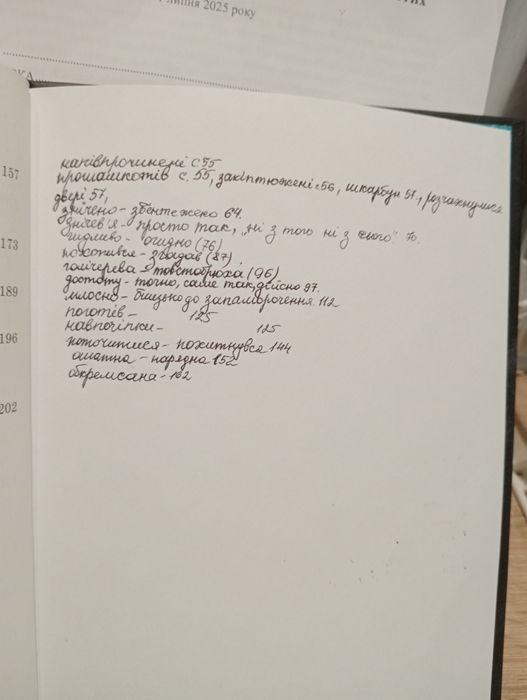 липня 2025 року
157
173
189
196
202
напівпрочинені с 55
прошашкотів с. 55, закіптюжені с56, шкарбун 57, розчахнулися
двері 57,
знічено - збентежено 64.
Знічев'я - просто так, "ні з того ні з сього" 70.
гидливо - огидно (76)
похопивсь - згадав (87)
голічерева - товстобрюха (96)
достоту - точно, саме так, дійсно 97.
млосно - близько до запаморочення 112
поготів - 125
навпочіпки - 125
поточитися - похитнувся 144
ошатна - нарядна 152
обкремсана - 162